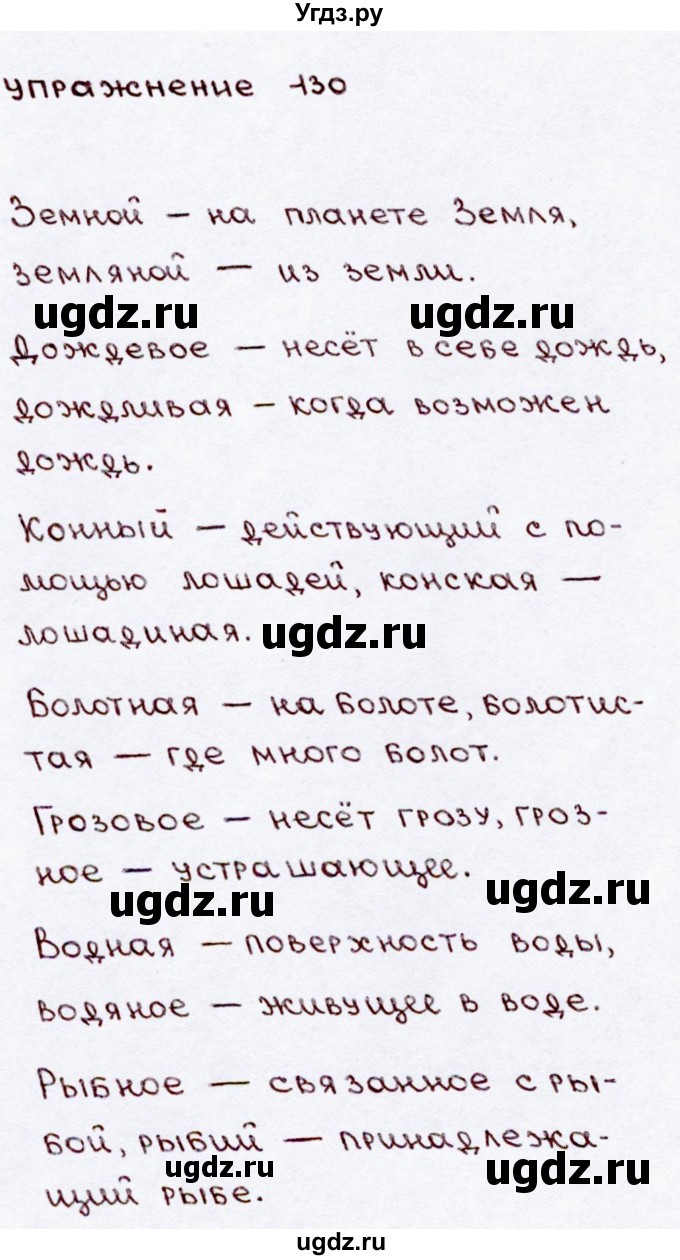 Угдз.ру
упражнение 130
Земной – на планете Земля,
земляной – из земли.
ugdz.ru ugdz.ru
Дождевое – несёт в себе дождь,
дождливая – когда возможен
дождь.
Конный – действующий с по-
мощью лошадей, конская –
лошадиная. ugdz.ru
Болотная – на болоте, болотис-
тая – где много болот.
Грозовое – несёт грозу, гроз-
ное – устрашающее.
ugdz.ru ugdz.ru
Водная – поверхность воды,
водяное – живущее в воде.
Рыбное – связанное с ры-
бой, рыбий – принадлежа-
ugdz.ru ugdz.ru
щий рыбе.
ugdz.ru